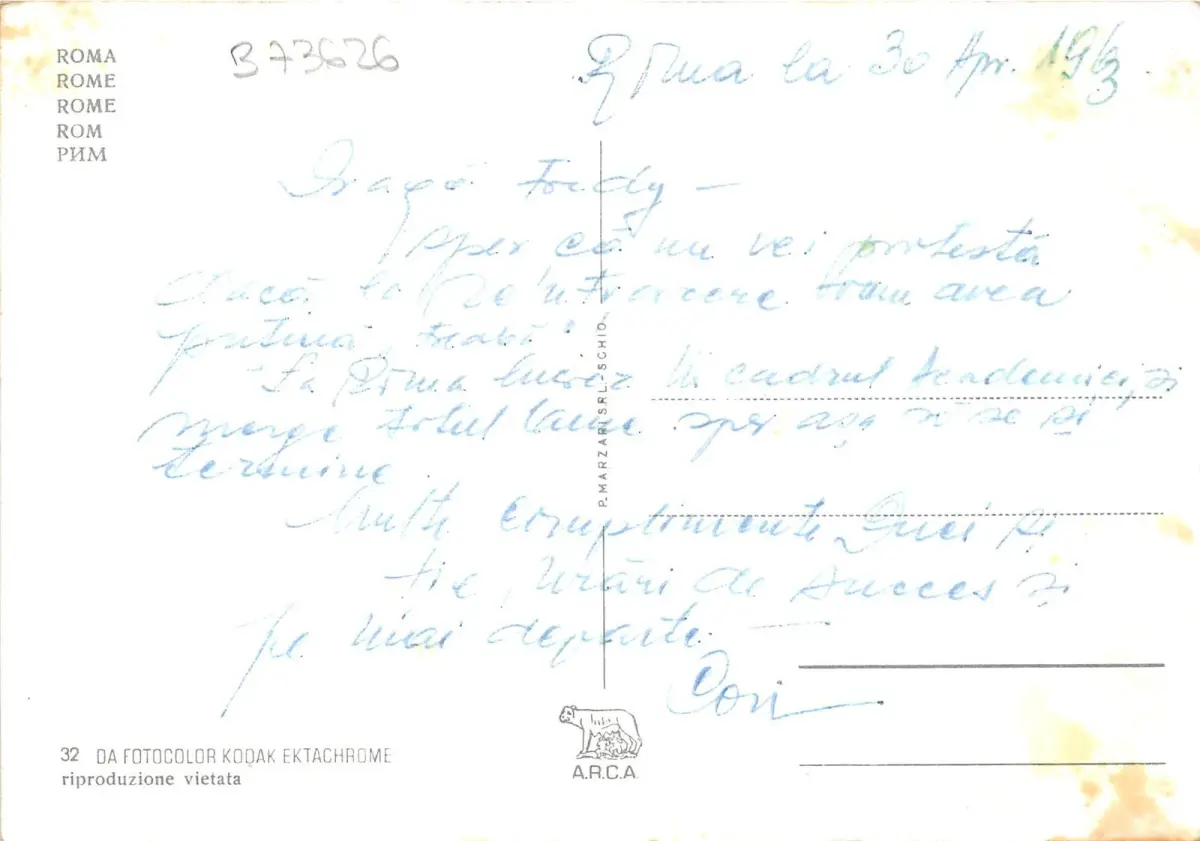 ROMA
ROME
ROME
ROM
РИМ
B 73626
Roma la 30 Apr. 1963
Dragă Fredy —
sper că nu vei protestă
dacă la reîntoarcere vom avea
puțină treabă!
La Roma lucrez în cadrul Academiei, și
merge totul bine sper așa să se și
termine.
Multe complimente Duci și
ție, urări de succes și
pe mai departe. —
Cori
P. MARZARI S.R.L. - SCHIO
32 DA FOTOCOLOR KODAK EKTACHROME
riproduzione vietata
A.R.C.A